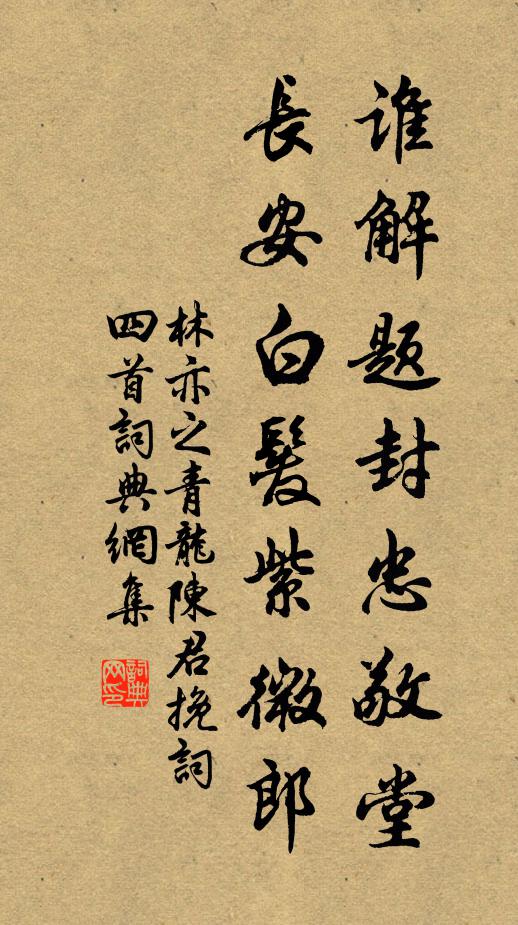 谁解题封忠敬堂
長安白髮紫微郎
林亦之青龍陳君挽詞
四首詞典網集
詞典网印